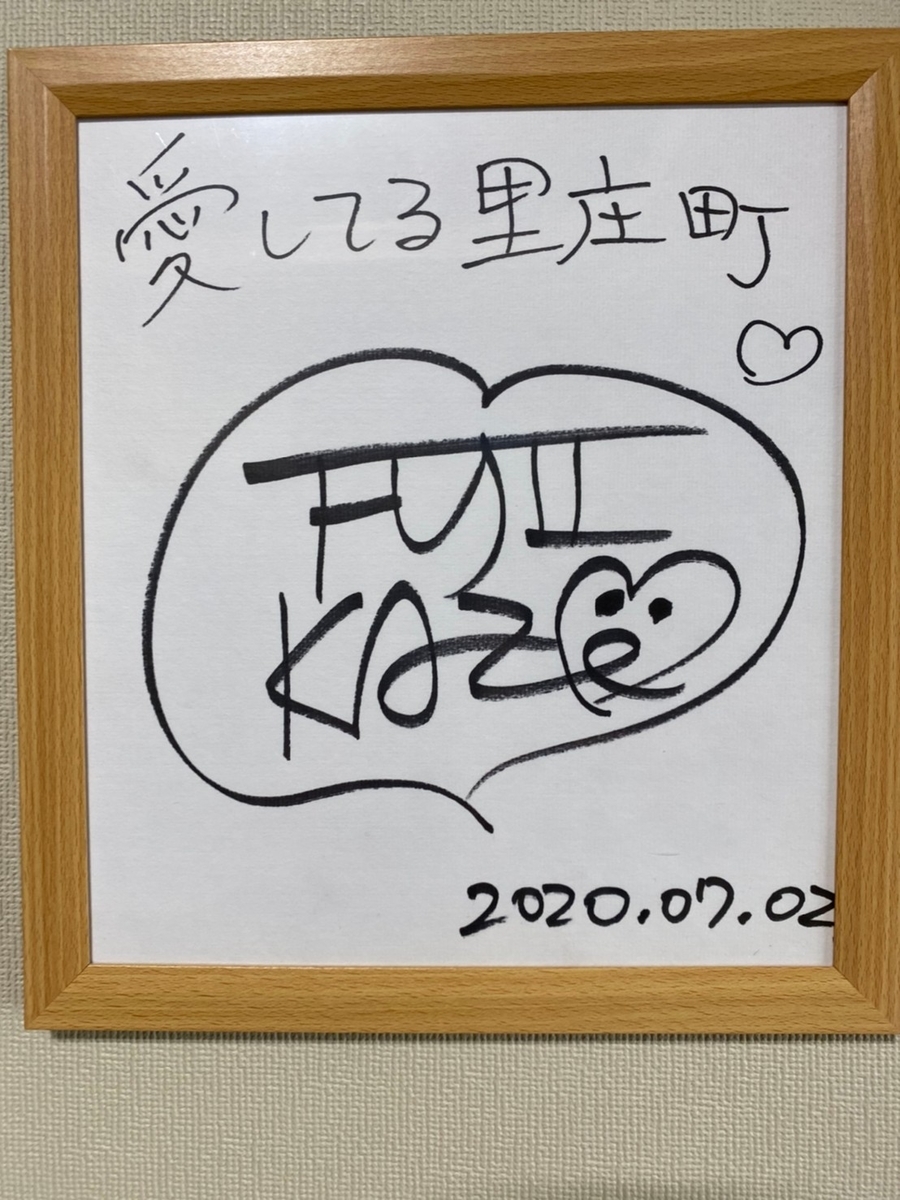 愛してる里庄町
FUJII
KAZe
2020.07.02